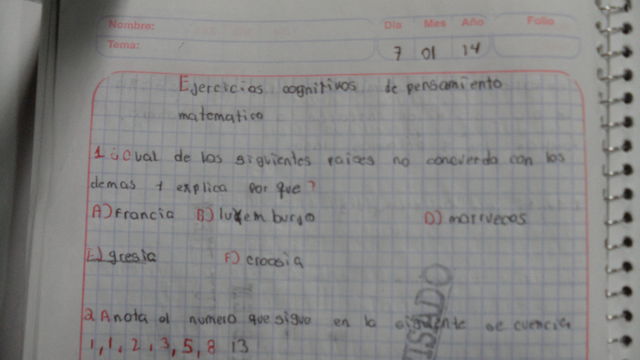 Nombre: Día Mes Año Folio
Tema: 7 01 14
Ejercicios cognitivos de pensamiento
matematico
1 ¿Cual de los siguientes paices no concuerda con los
demas y explica por que?
A) Francia B) luxem burgo D) marruecos
E) gresia F) croasia
2 Anota el numero que sigue en la siguiente se cuencia
1, 1, 2, 3, 5, 8 13